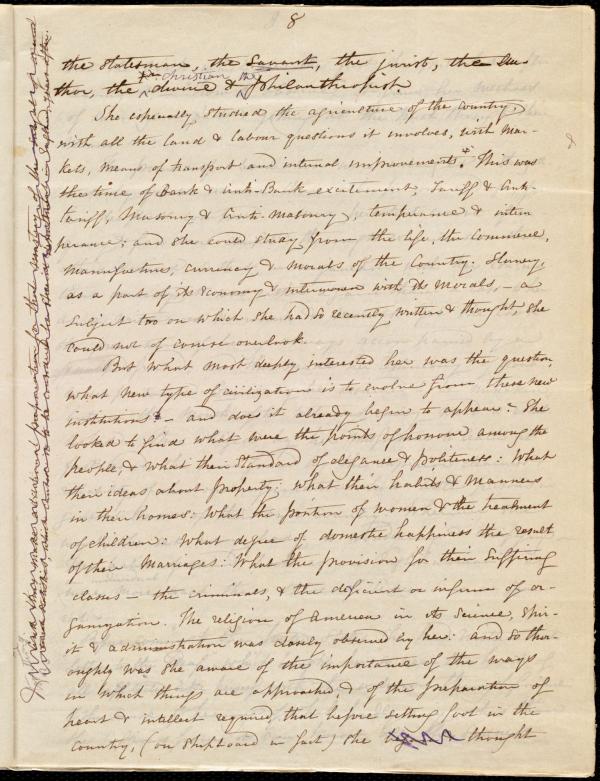 8
the statesman, the Savant, the jurist, the Au-
thor, the divine the Christian & the Philanthropist.
She especially studied the agriculture of the Country,
with all the land & labour questions it involves, with Mar-
kets, means of transport and internal improvements. This was
the time of Bank & Anti-Bank excitement, Tariff & Anti-
tariff, Masonry & Anti-Masonry, temperance & intem-
perance; and she could study from the life, the Commerce,
Manufactures, currency & Morals of the Country. Slavery,
as a part of its Economy & interwoven with its Morals, – a
Subject too on which she had so recently written & thought, she
could not of course overlook.
But what most deeply interested her was the question,
what new type of civilization is to evolve from these new
institutions? – and does it already begin to appear? She
looked to find what were the points of honour among the
people, & what their Standard of elegance & politeness: What
their ideas about Property; what their habits & Manners
in their homes: What the position of women & the treatment
of children: What degree of domestic happiness the result
of their Marriages: What the provision for their Suffering
classes – the criminals, & the deficient or infirm of or-
ganization. The religion of America in its Science, Spir-
it & administration was closely observed by her: and so tho-
roughly was she aware of the importance of the ways
in which things are approached, & of the preparation of
heart & intellect required, that before setting foot in the
Country, (on Shipboard in fact) she thought